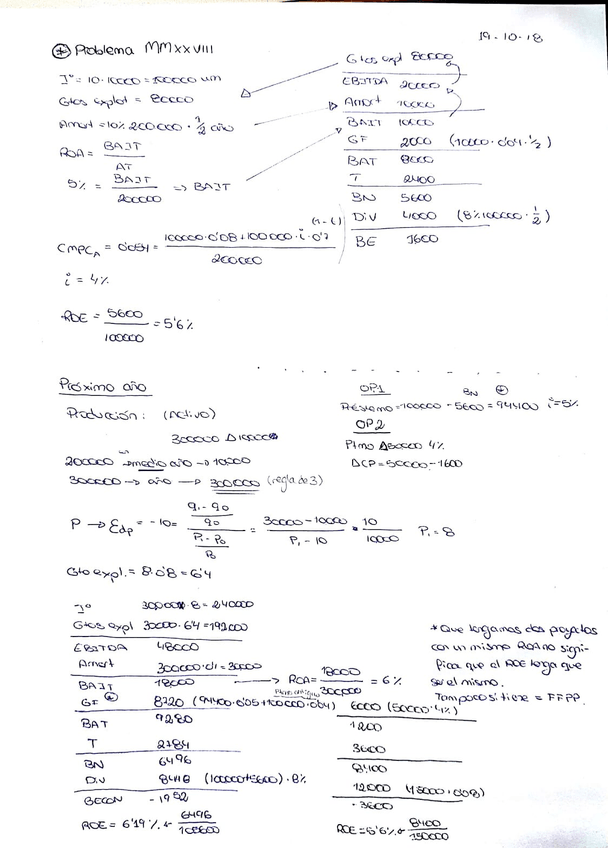 19-10-18
⊛ Problema MMXXVIII
Iº = 10·10000 = 100000 um
Gtos explot = 80000
Amort = 10% 200000 · 1/2 año
ROA = BAIT / AT
5% = BAIT / 200000 => BAIT
CMPC_A = 0'054 = 100000·0'08 + 100000·i·0'7 (1-t) / 200000
i = 4%
ROE = 5600 / 100000 = 5'6%
Gtos expl 80000
EBITDA 20000
Amort 10000
BAIT 10000
GF 2000 (10000·0'04·1/2)
BAT 8000
T 2400
BN 5600
Div 4000 (8% 100000·1/2)
BE 1600
Próximo año
Producción: (Activo)
300000
200000 → medio año → 10000
300000 → año → 300000 (regla de 3)
P → Edp = -10 = q1-q0 / q0 / P1-P0 / P0 = 30000-10000 / P1-10 · 10 / 10000 P1 = 8
Gto expl. = 8·0'8 = 6'4
OP1
BN ⊛
Préstamo = 100000 - 5600 = 94400 i = 5%
OP2
Ptmo Δ50000 4%
ΔCP = 50000 - 1600
Iº 30000·8 = 240000
Gtos expl 30000·6'4 = 192000
EBITDA 48000
Amort 300000·0'1 = 30000
BAIT 18000 → ROA = 18000 / 300000 = 6%
GF ⊛ 8720 (94400·0'05 + 100000·0'04) 6000 (50000·4%)
Ptmo antiguo
BAT 9280 1200
T 2784 3600
BN 6496 8400
Div 8448 (100000+5600)·8% 12000 (15000·0'08)
BECON -1952 -3600
ROE = 6'19% ← 6496 / 105600 ROE = 5'6% ← 8400 / 150000
* Que tengamos dos proyectos
con un mismo ROA no signi-
fica que el ROE tenga que
ser el mismo.
Tampoco si tiene = FFPP.